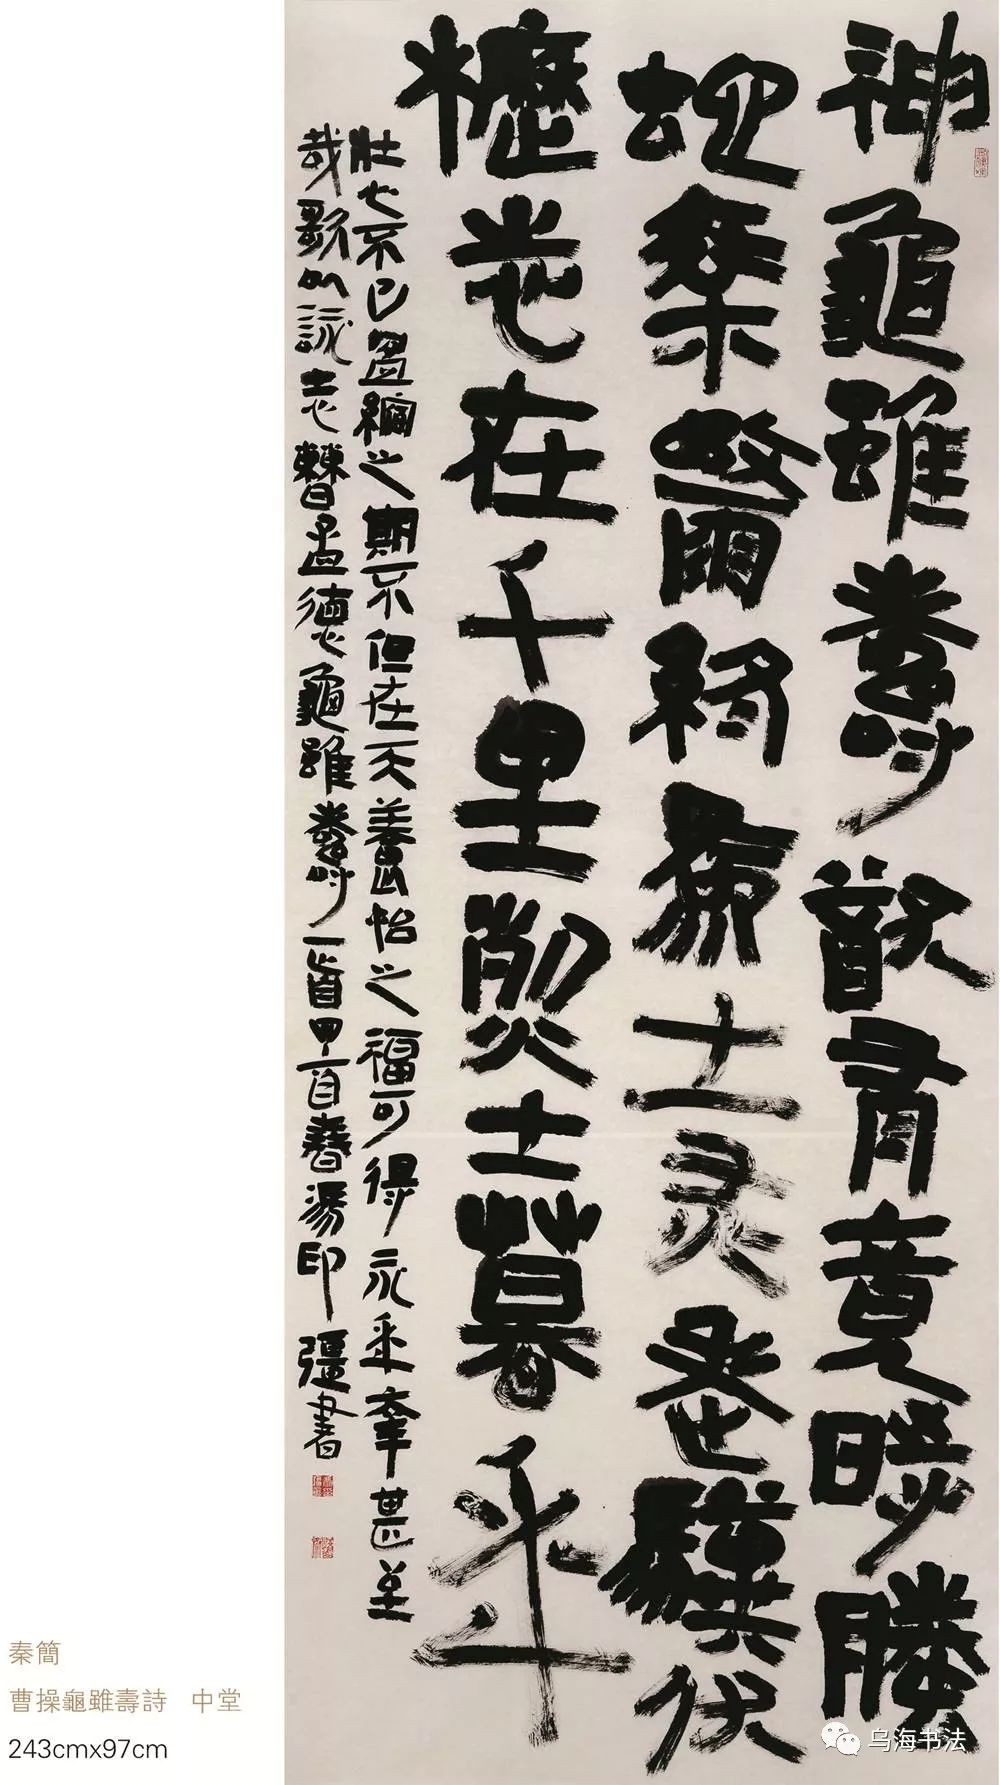 神龜雖壽猷有竟時騰
蛇乘霧終為土灰老驥伏
櫪志在千里烈士暮年
壯心不已盈縮之期不但在天養怡之福可得永年幸甚至
哉歌以詠志曹孟德龜雖壽一首甲首春湯印彊書
秦簡
曹操龜雖壽詩 中堂
243cmx97cm
乌海书法